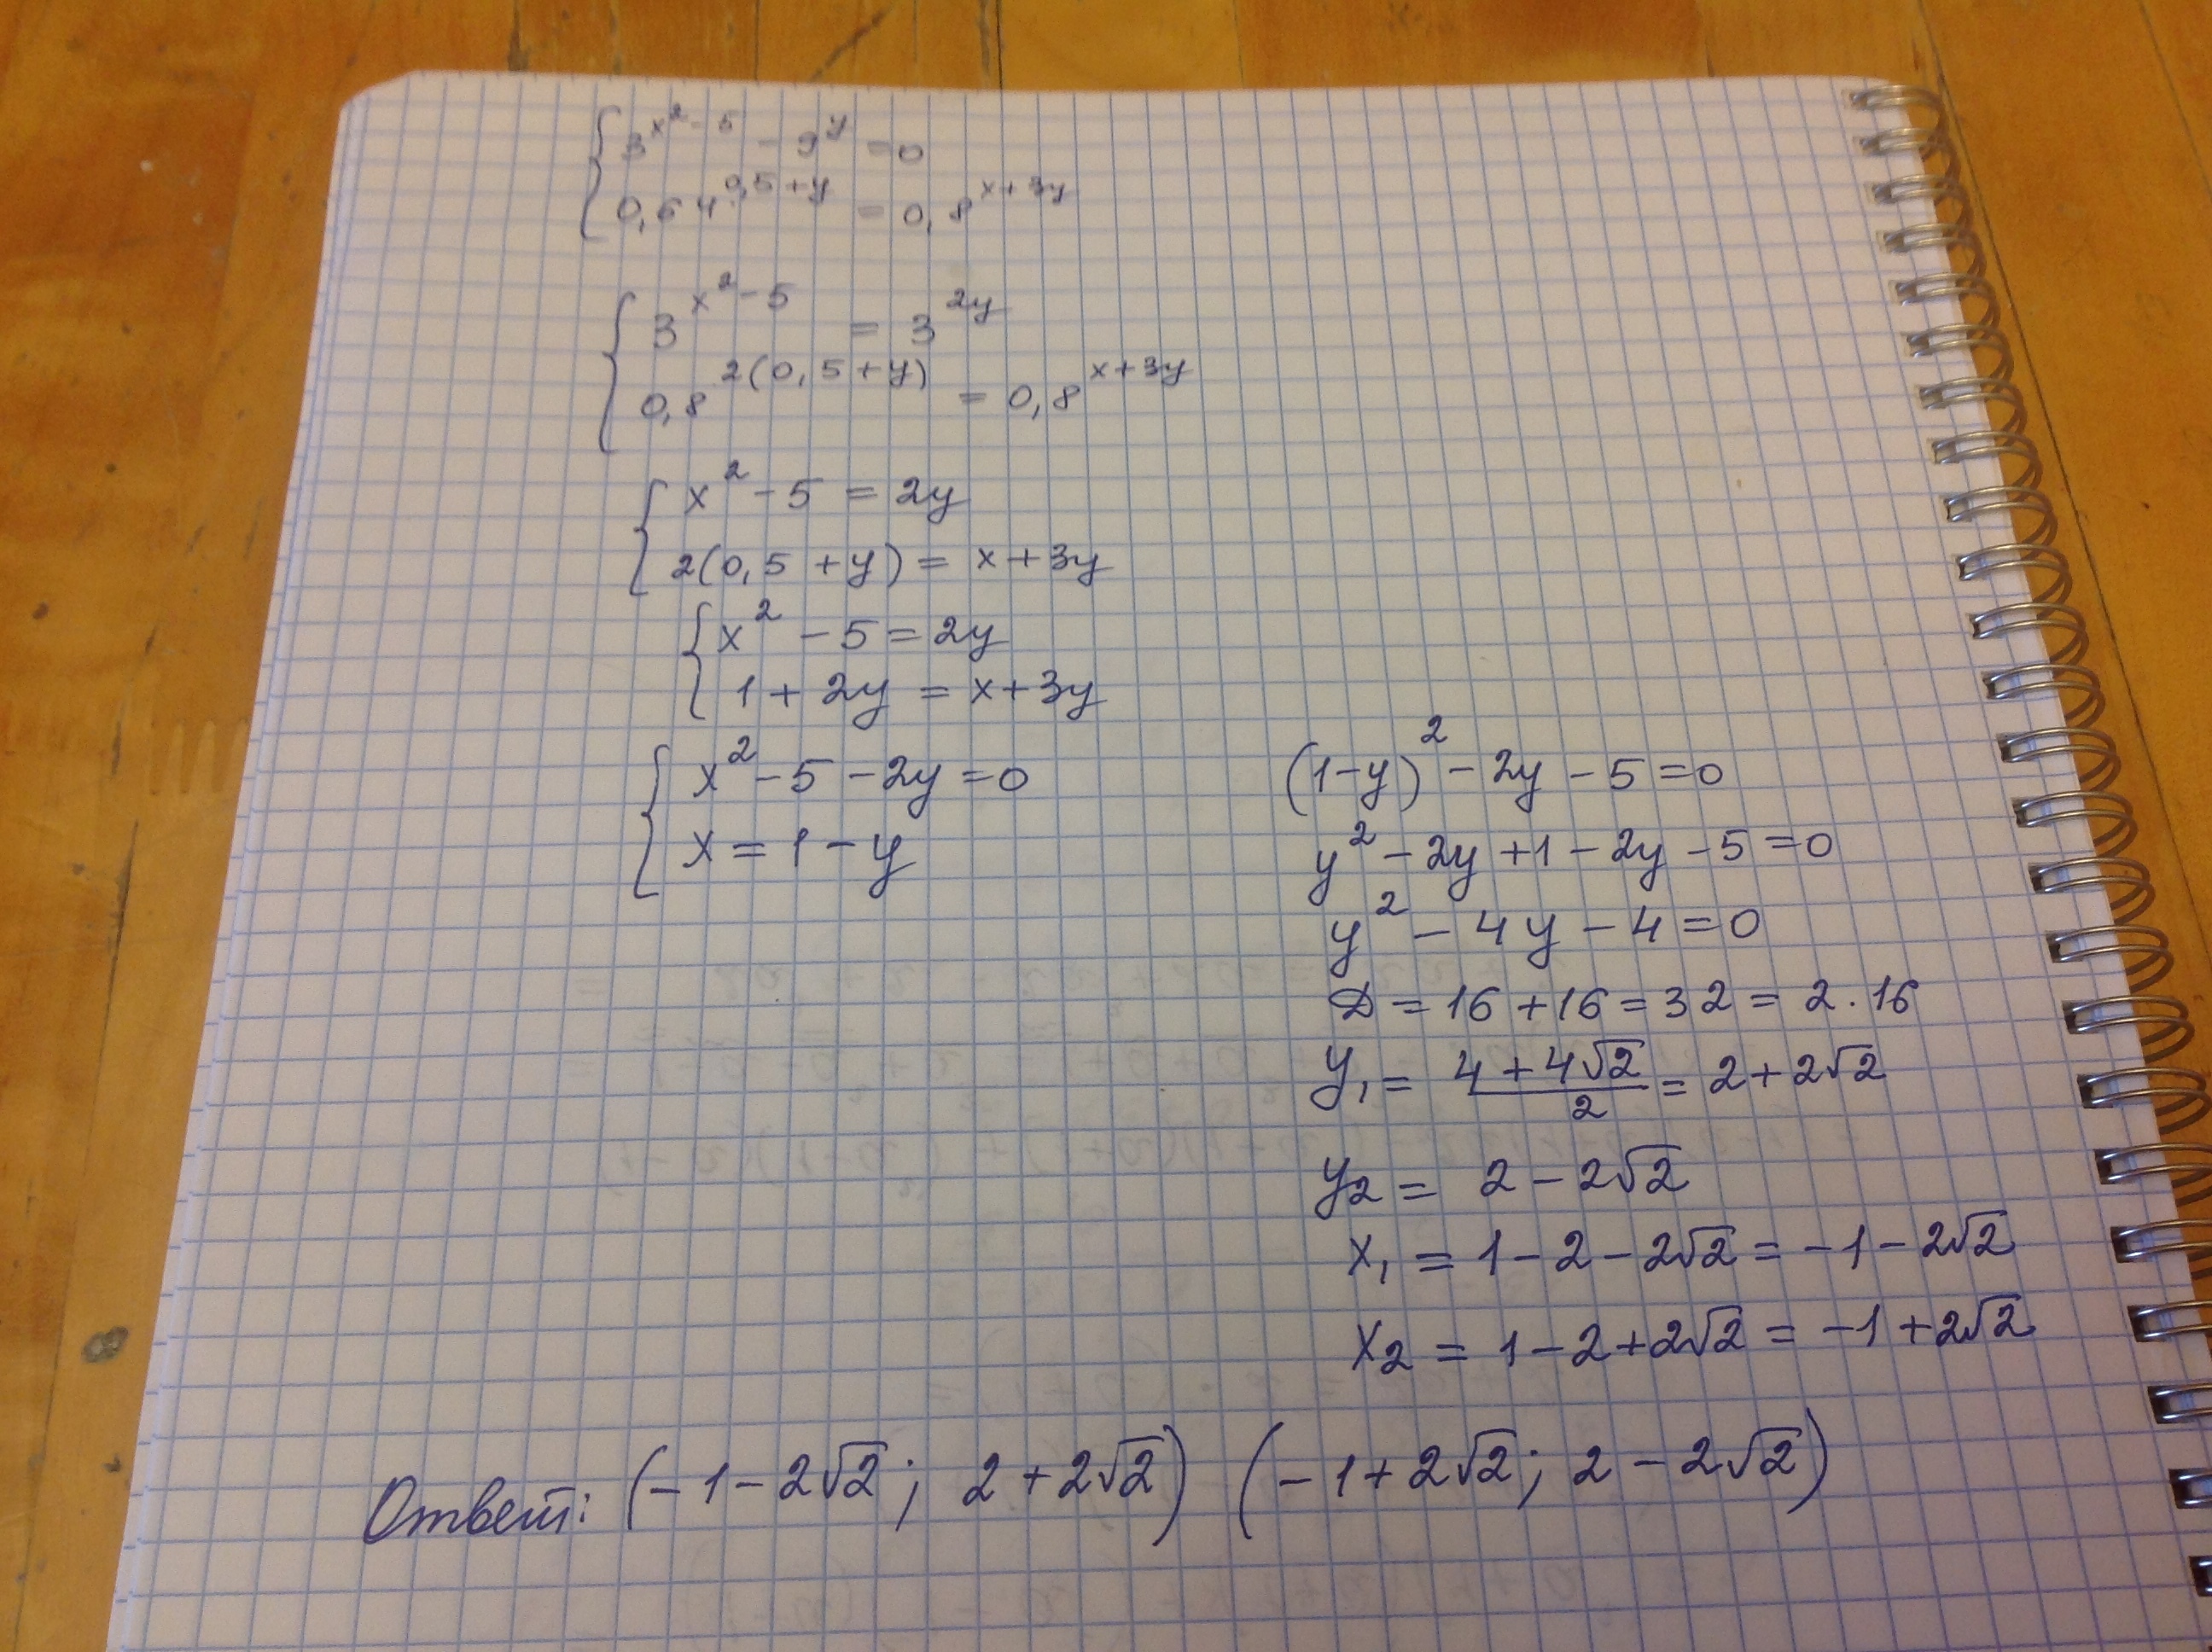 { 3^(x²-5) - 9^y = 0
0,64^(0,5+y) = 0,8^(x+3y)
{ 3^(x²-5) = 3^(2y)
0,8^(2(0,5+y)) = 0,8^(x+3y)
{ x² - 5 = 2y
2(0,5+y) = x+3y
{ x² - 5 = 2y
1 + 2y = x+3y
{ x² - 5 - 2y = 0
x = 1 - y
(1-y)² - 2y - 5 = 0
y² - 2y + 1 - 2y - 5 = 0
y² - 4y - 4 = 0
D = 16 + 16 = 32 = 2 · 16
y₁ = (4 + 4√2)/2 = 2 + 2√2
y₂ = 2 - 2√2
x₁ = 1 - 2 - 2√2 = -1 - 2√2
x₂ = 1 - 2 + 2√2 = -1 + 2√2
Ответ: (-1 - 2√2; 2 + 2√2) (-1 + 2√2; 2 - 2√2)